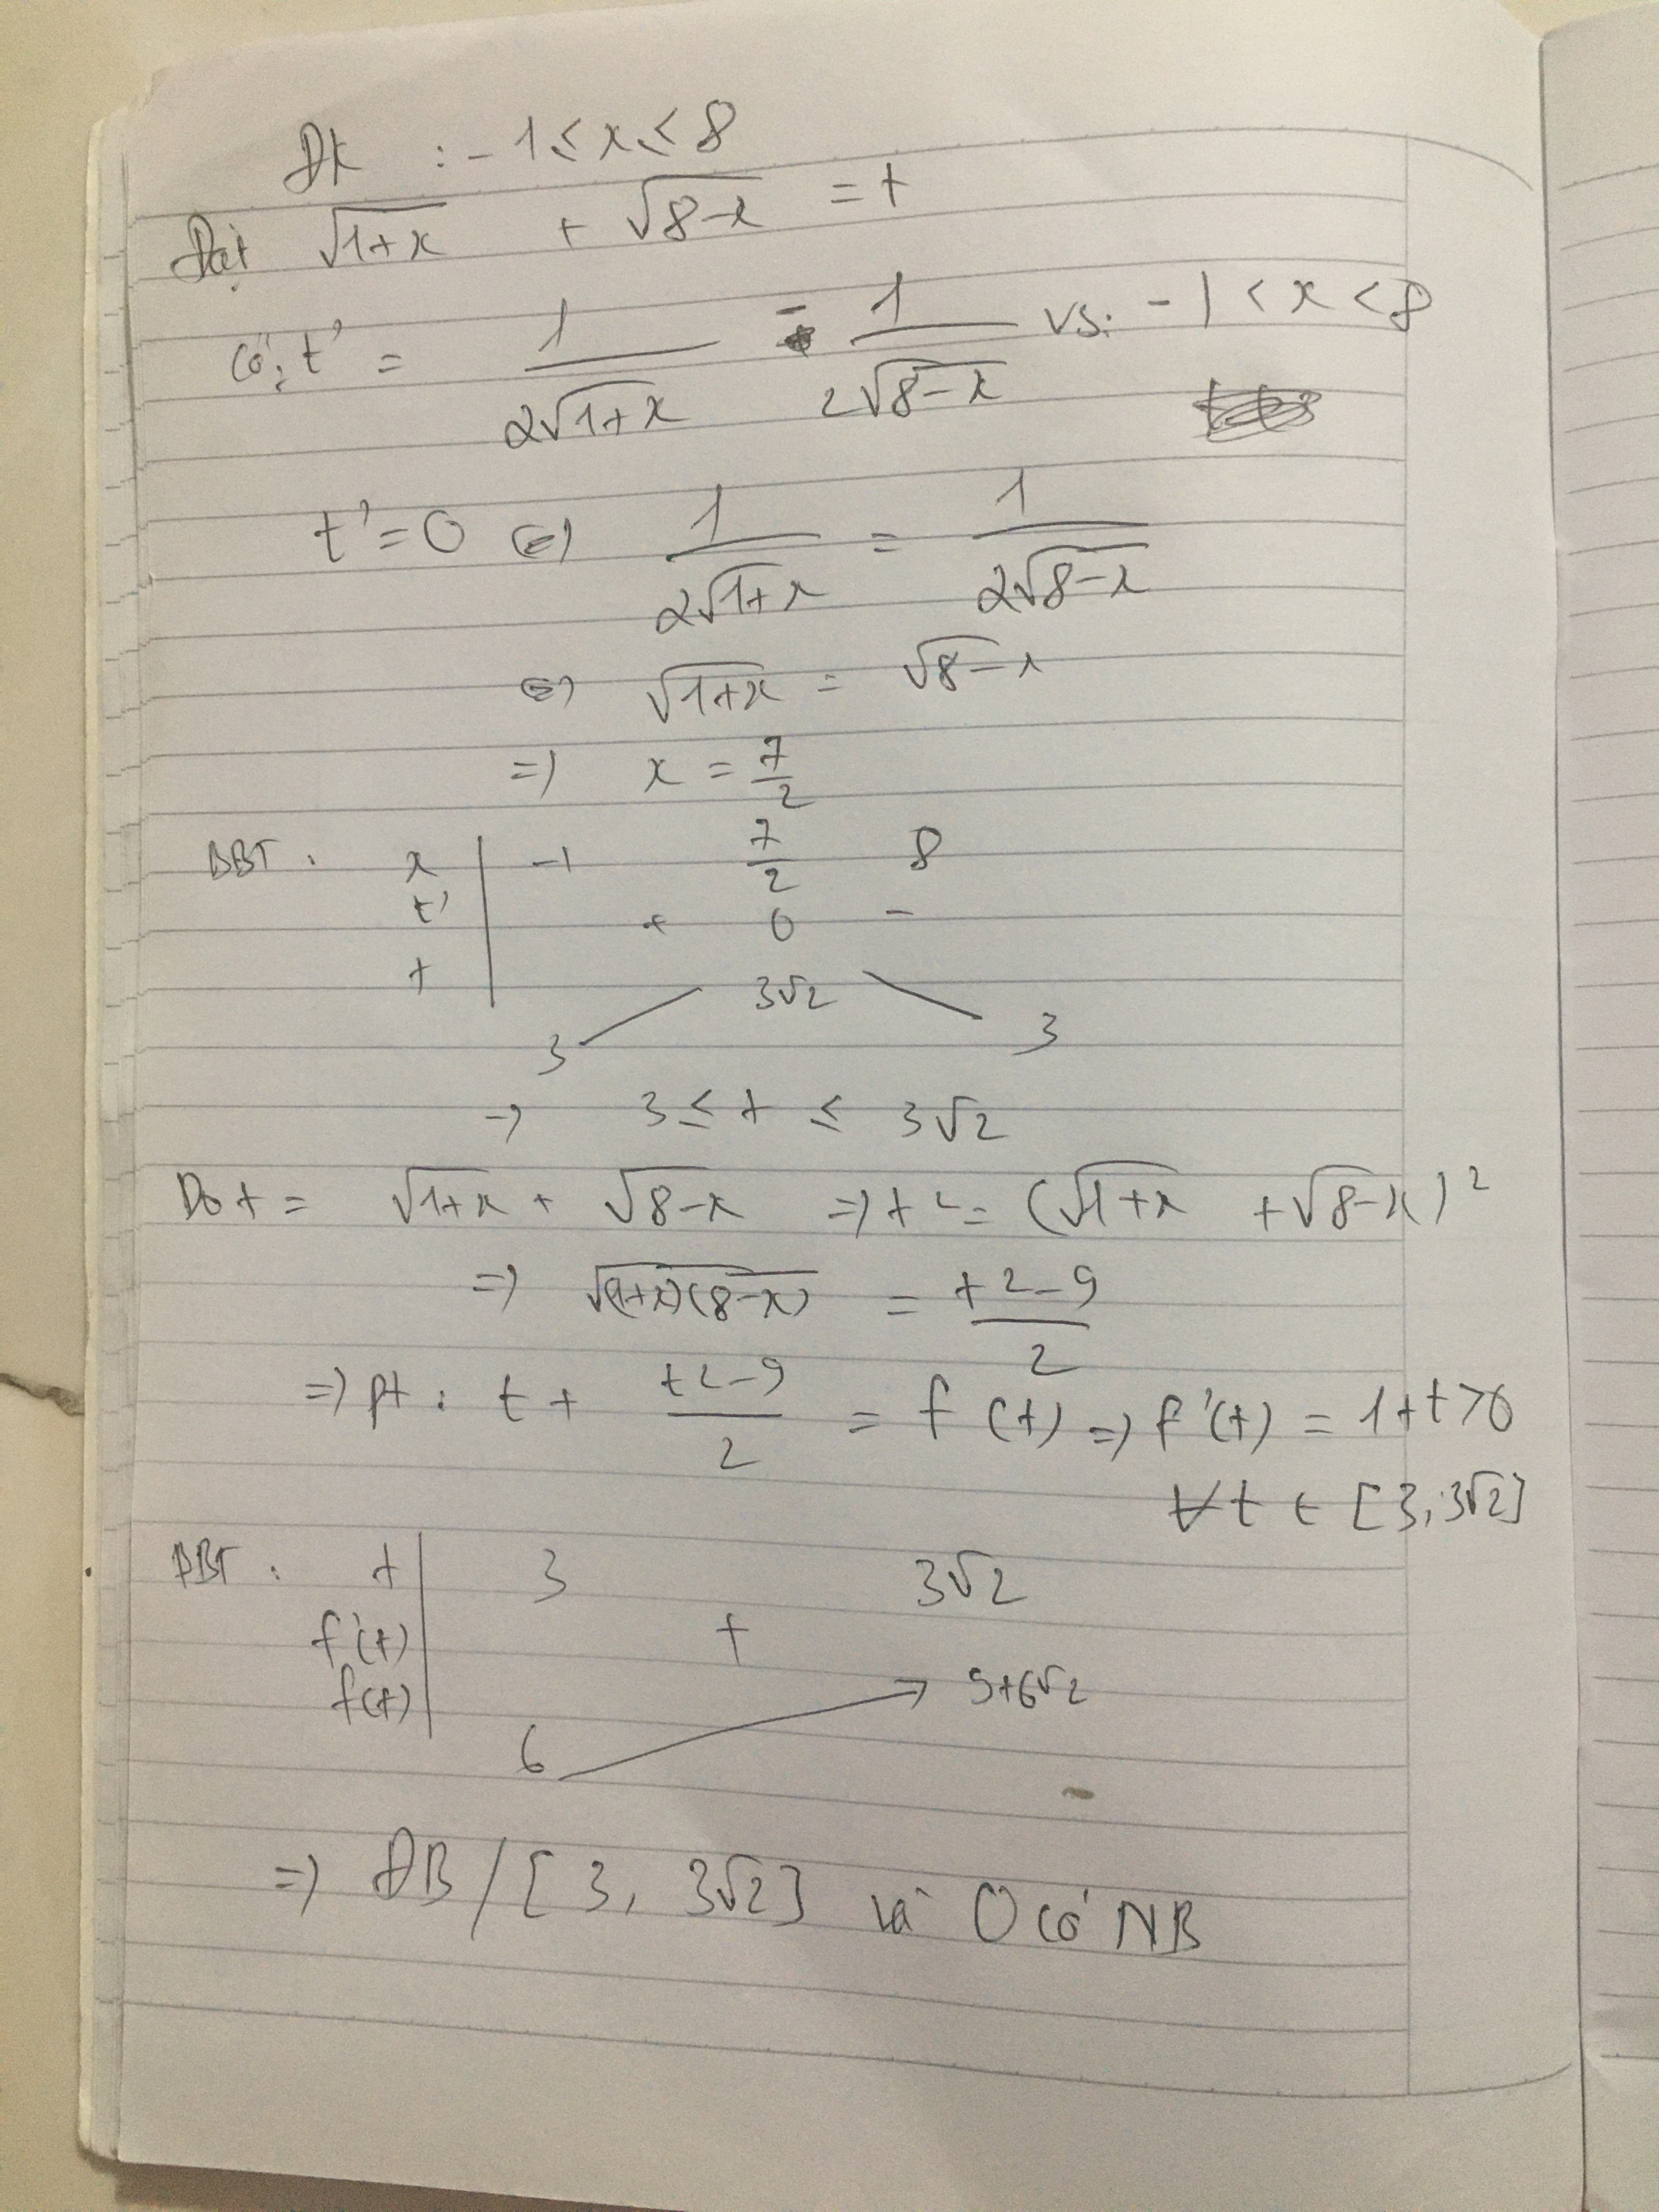 Đk : -1 ≤ x ≤ 8
Đặt √(1+x) + √(8-x) = t
Có: t' = 1/(2√(1+x)) - 1/(2√(8-x)) vs: -1 < x < 8
t' = 0 (=) 1/(2√(1+x)) = 1/(2√(8-x))
(=) √(1+x) = √(8-x)
=) x = 7/2
BBT : x | -1 7/2 8
t' | + 0 -
t | 3 3√2 3
→ 3 ≤ t ≤ 3√2
Do t = √(1+x) + √(8-x) =) t² = (√(1+x) + √(8-x))²
=) √((1+x)(8-x)) = (t²-9)/2
=) pt : t + (t²-9)/2 = f(t) =) f'(t) = 1+t>0
∀t ∈ [3; 3√2]
BBT : t | 3 3√2
f'(t) | +
f(t) | 6 → 9+6√2
2
=) ĐB / [3, 3√2] và 0 có NB